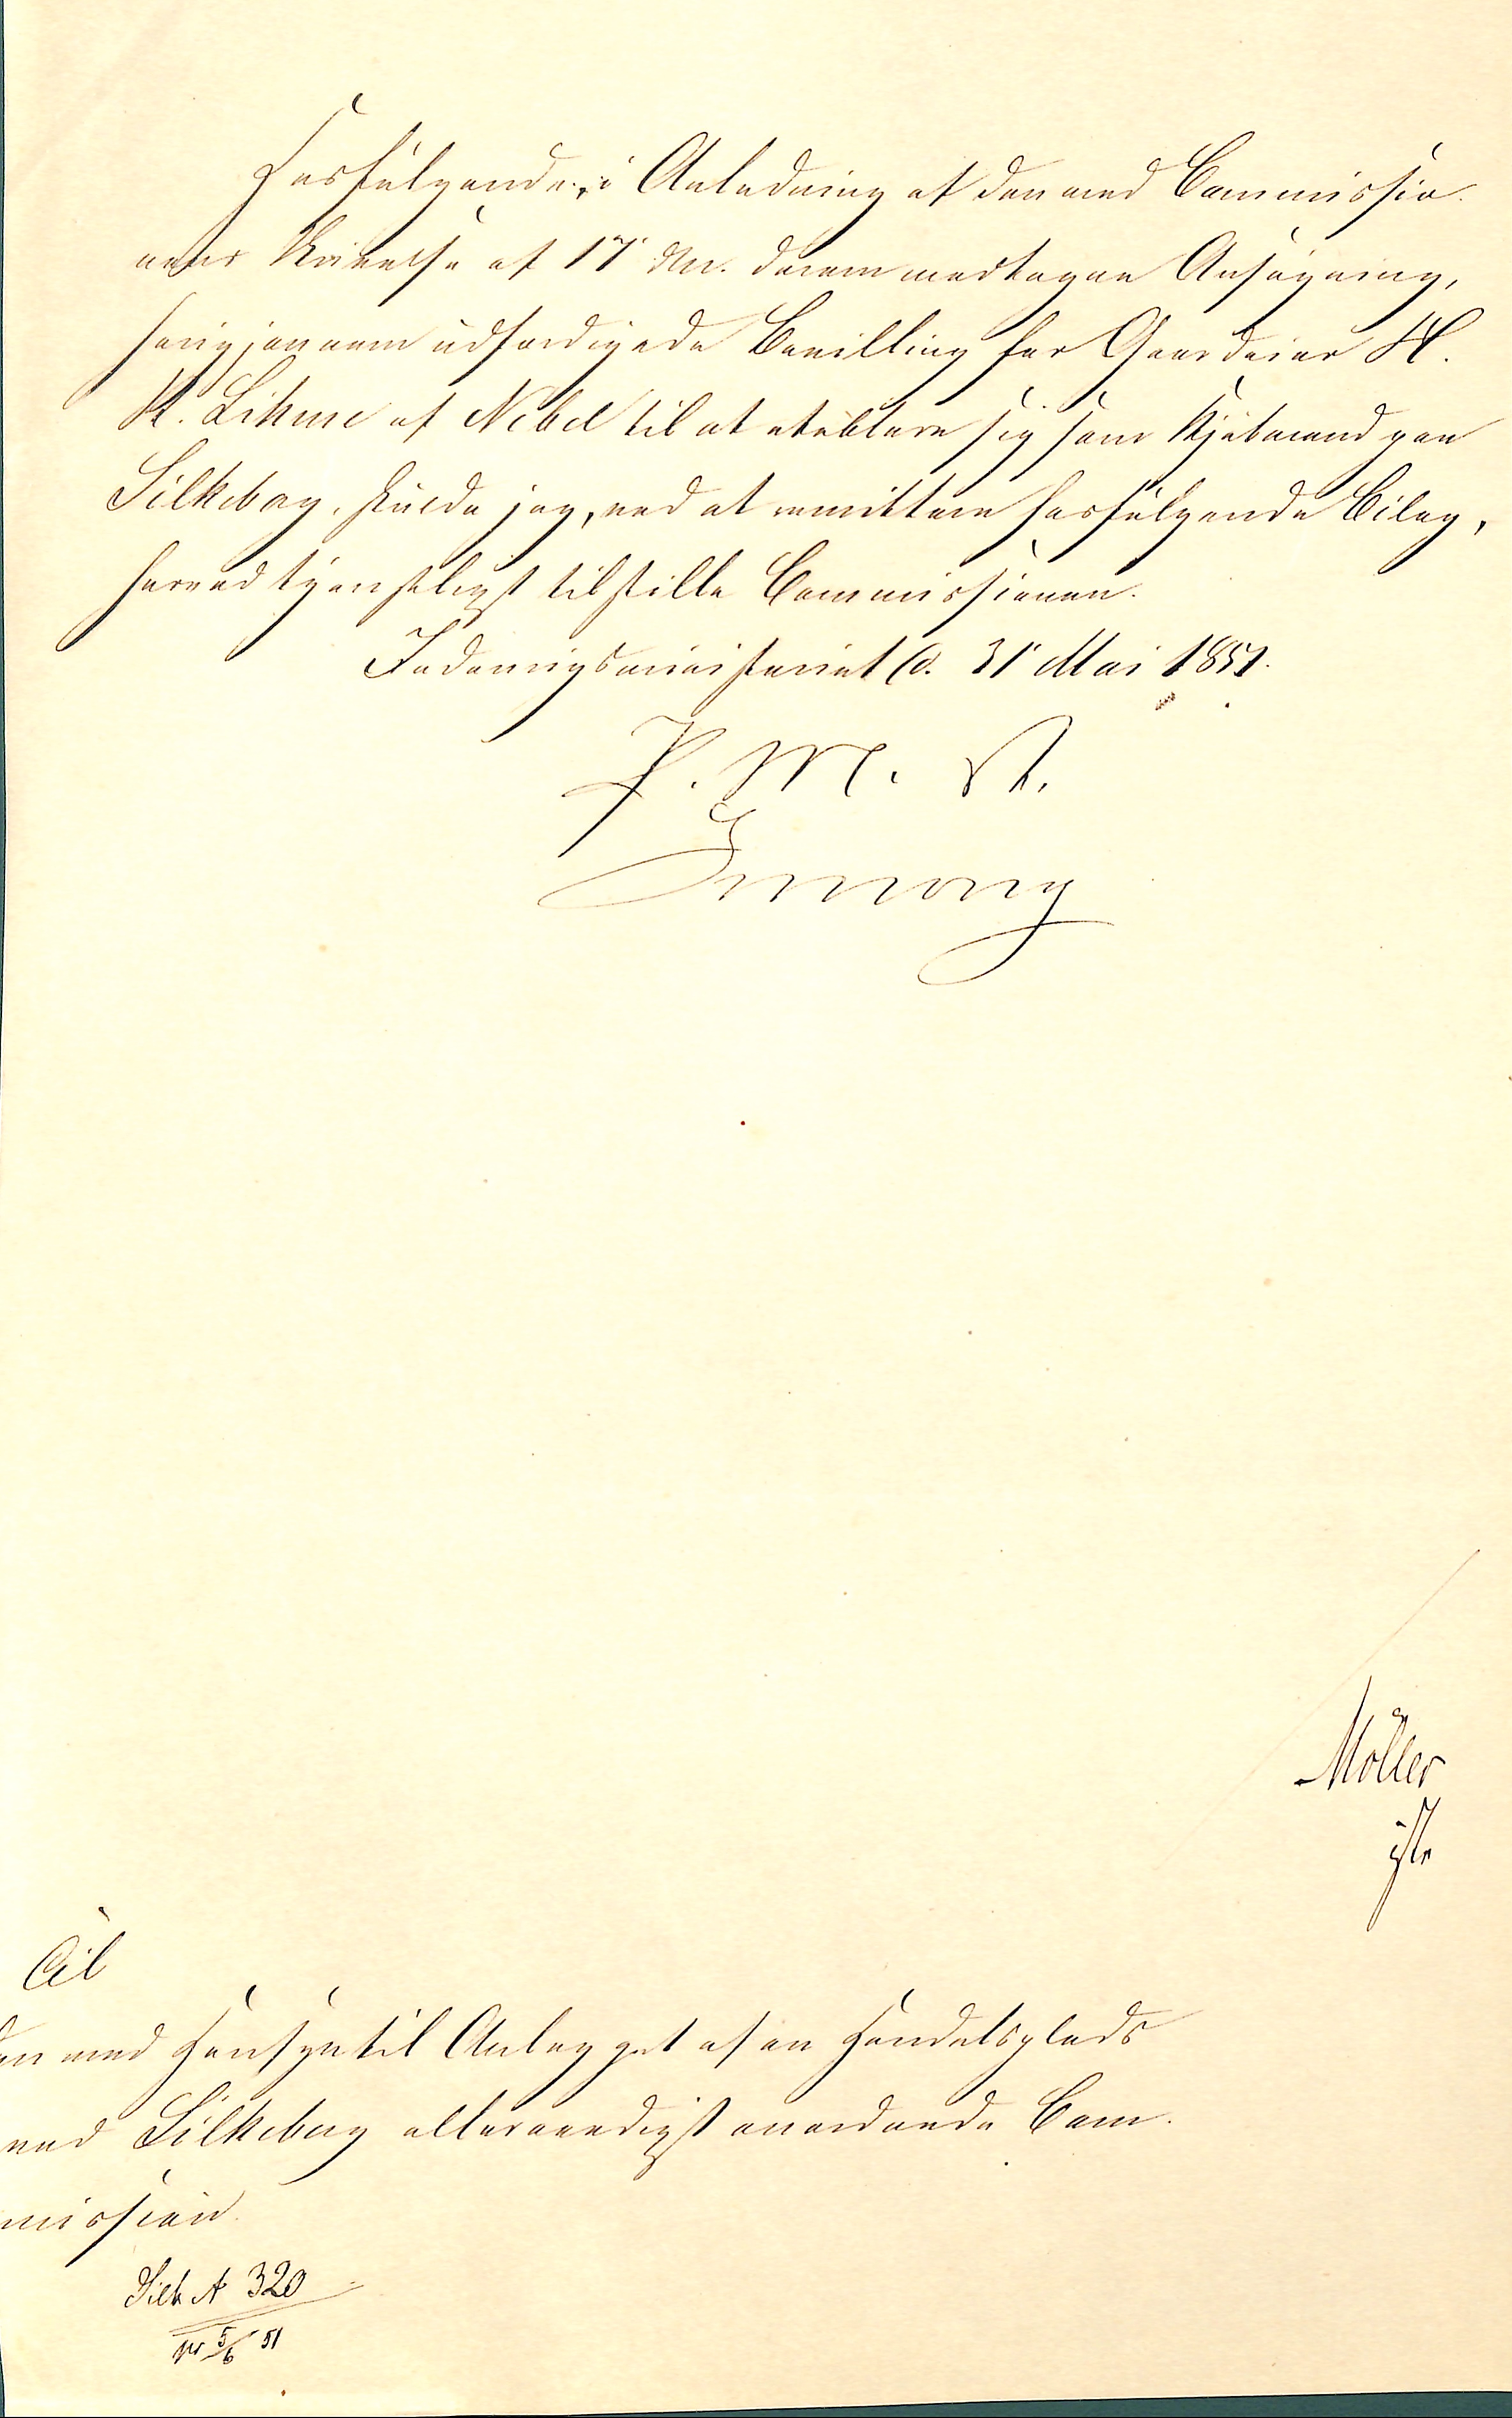 Hosfølgende, i Anledning af den med Commissio-
nens Skrivelse af 17' dM. derom modtagne Ansøgning,
herigjennem udfærdigede Bevilling for Gaardeier H.
K. Lihme af Nebel til at etablere sig som Kjøbmand paa
Silkeborg, skulde jeg, ved at remittere hosfølgende Bilag,
herved tjenstligst tilstille Commissionen.
Indenrigsministeriet d. 31' Mai 1851.
P. M. V.
Simony
Møller
Til
den med Hensyn til Anlægget af en Handelsplads
ved Silkeborg allernaadigst anordnede Com-
mission.
Silk A 320
pr 5/6 51